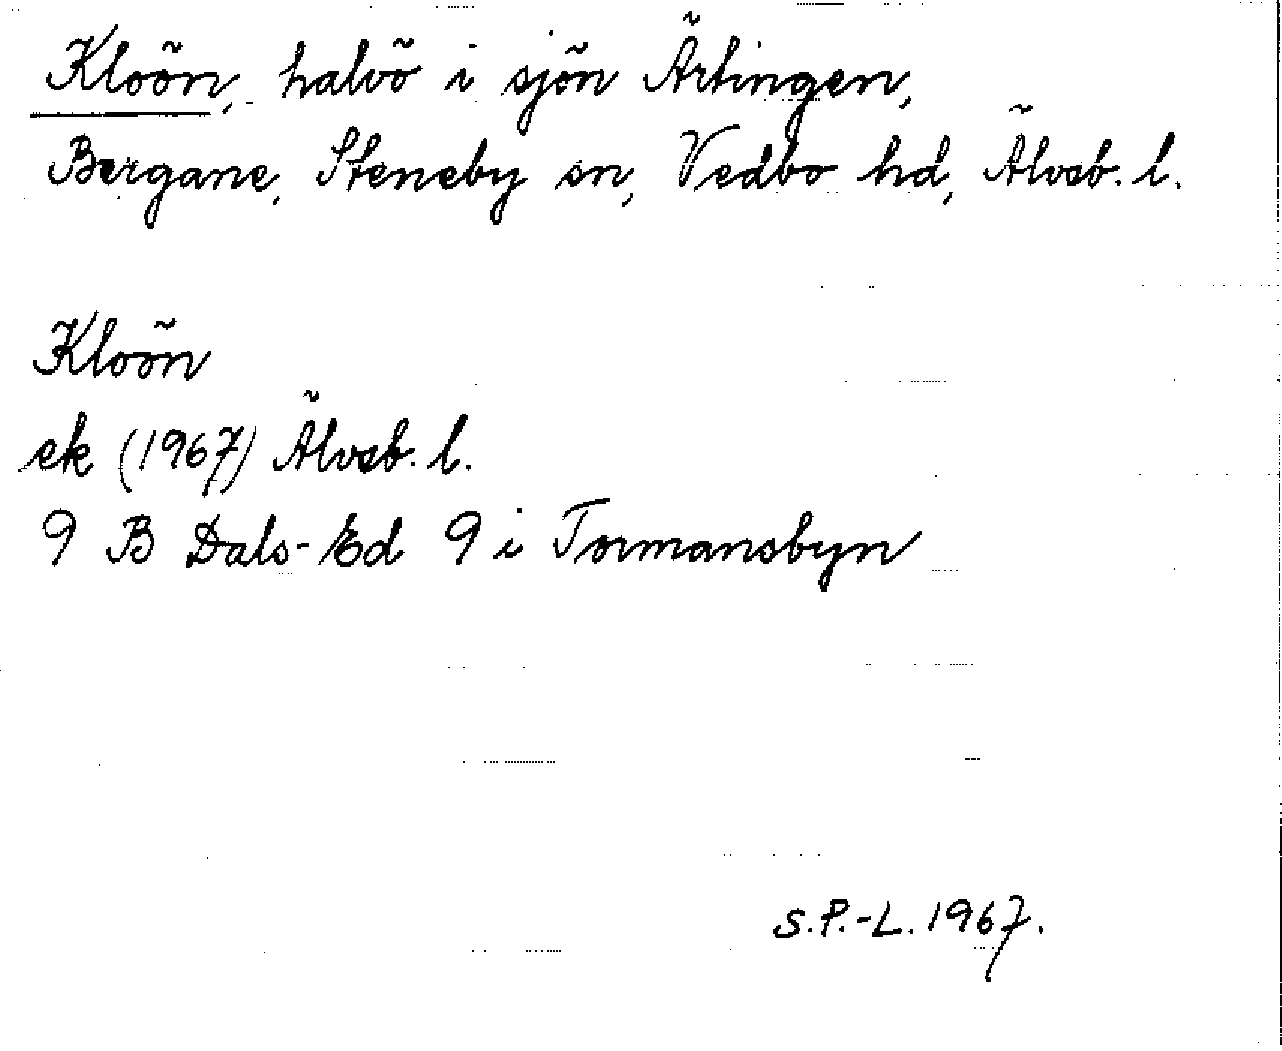 Kloön, halvö i sjön Ärtingen,
Bergane, Steneby sn, Vedbo hd, Älvsb. l.
Kloön
ek (1967) Älvsb. l.
9 B Dals-Ed 9 i Tormansbyn
S.P.-L. 1967.